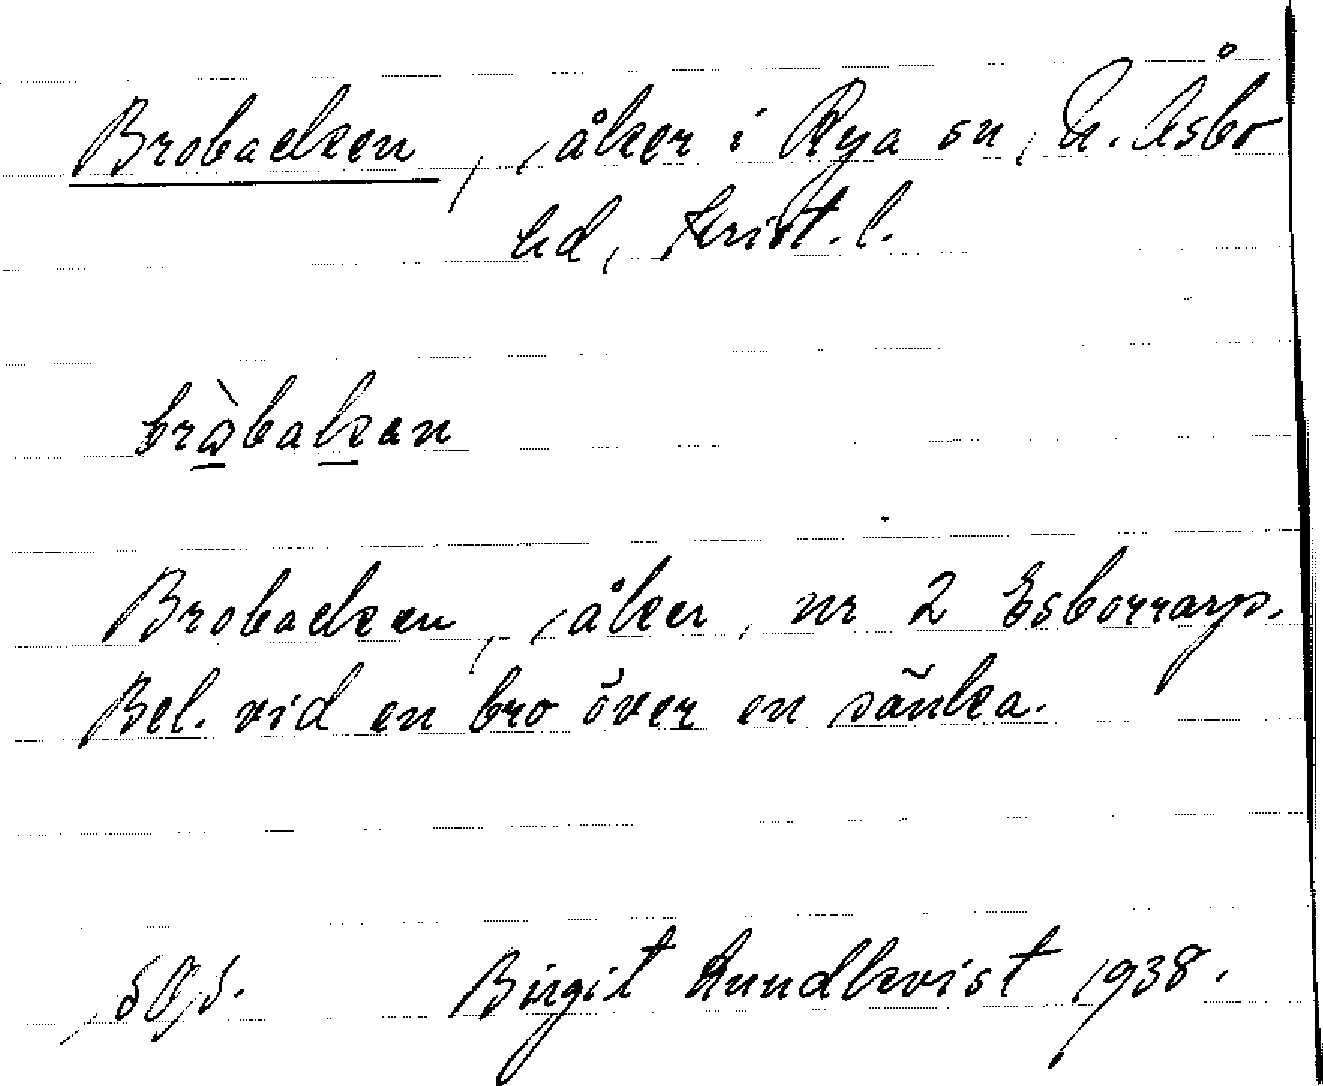 Brobacken, åker i Rya sn, N. Åsbo
hd, Krist. l.
bròbakan
Brobacken, åker, nr 2 Esborrarp.
Bel. vid en bro över en sänka.
Birgit Lundkvist 1938.